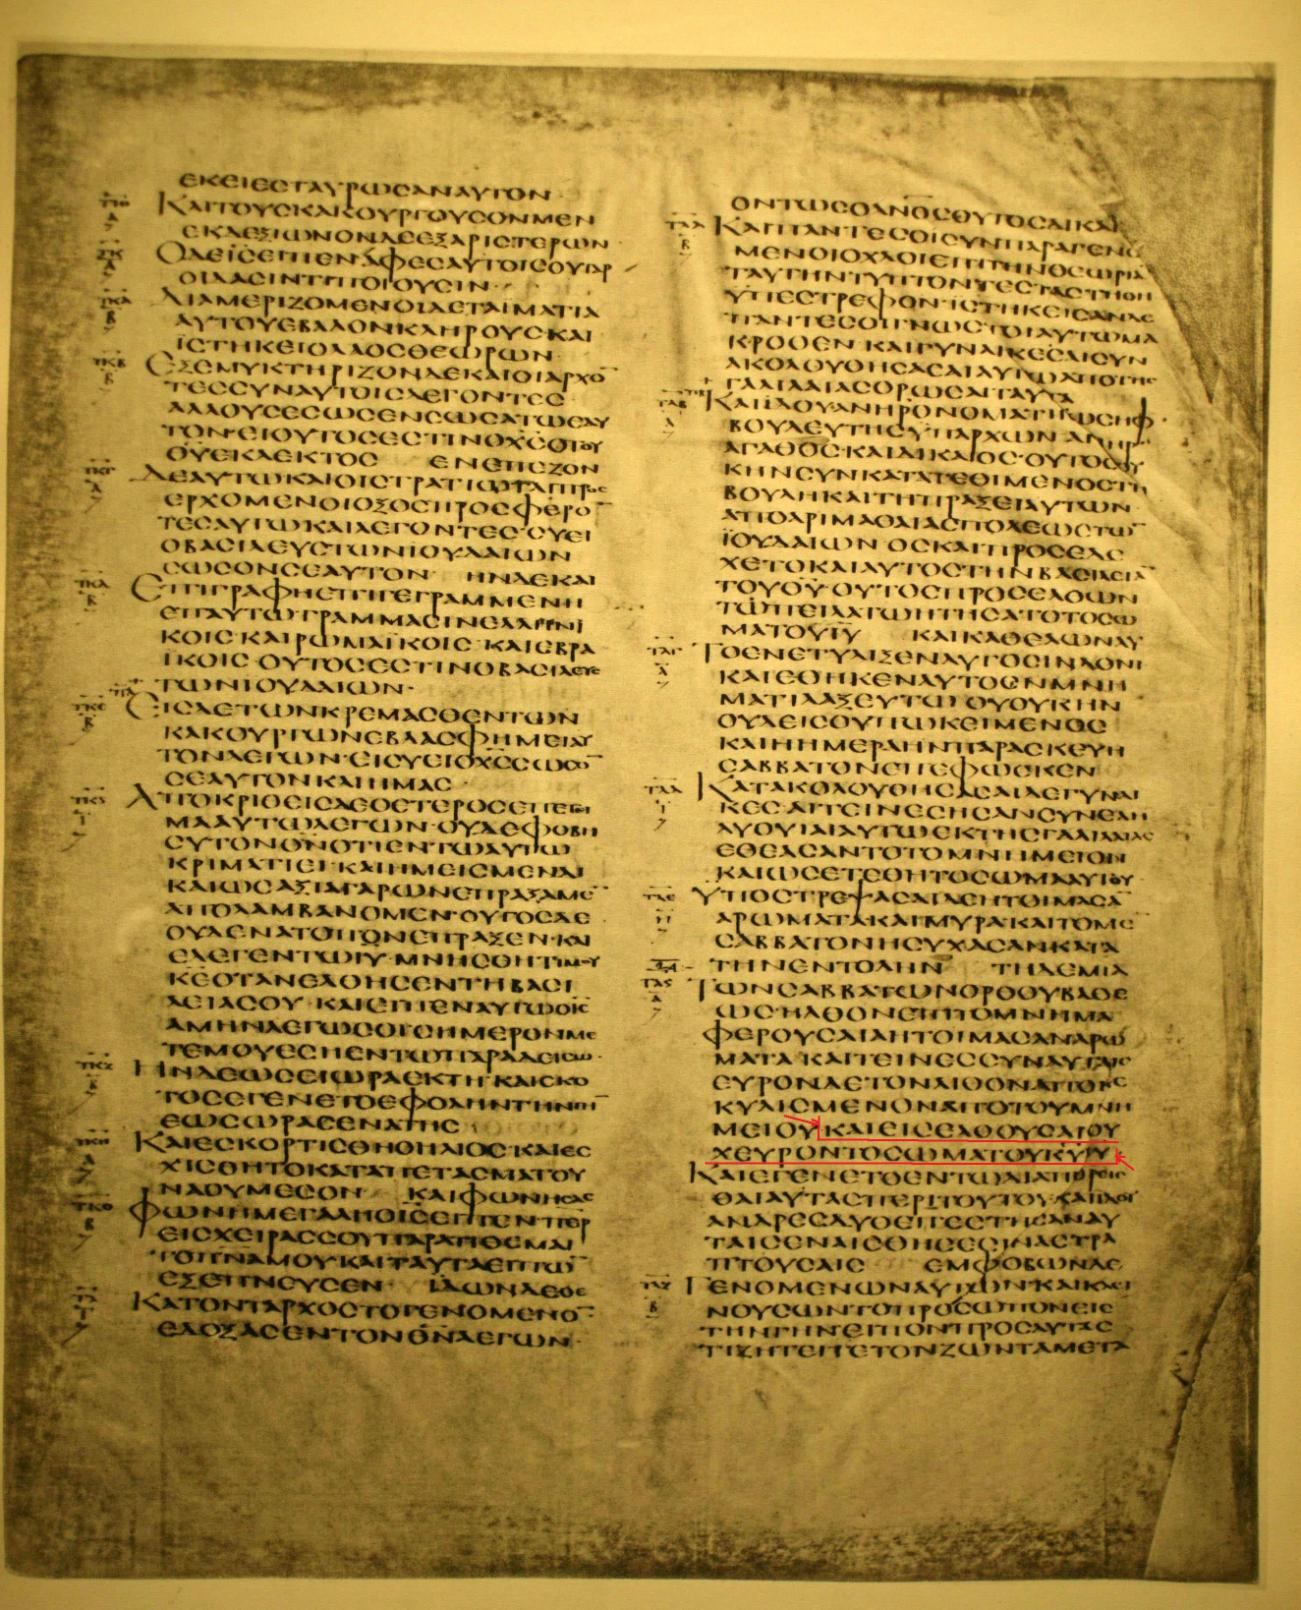 ΕΚΕΙΕϹΤΑΥΡΩϹΑΝΑΥΤΟΝ
ΚΑΙΤΟΥϹΚΑΚΟΥΡΓΟΥϹΟΝΜΕΝ
ΕΚΔΕΞΙΩΝΟΝΔΕΕΞΑΡΙϹΤΕΡΩΝ
ΟΔΕΙ̅Ϲ̅ΕΛΕΓΕΝΠ̅Ε̅Ρ̅ΑΦΕϹΑΥΤΟΙϹΟΥΓΑΡ
ΟΙΔΑϹΙΝΤΙΠΟΙΟΥϹΙΝ·
ΔΙΑΜΕΡΙΖΟΜΕΝΟΙΔΕΤΑΙΜΑΤΙΑ
ΑΥΤΟΥΕΒΑΛΟΝΚΛΗΡΟΥϹΚΑΙ
ΙϹΤΗΚΕΙΟΛΑΟϹΘΕΩΡΩΝ
ΕΞΕΜΥΚΤΗΡΙΖΟΝΔΕΚΑΙΟΙΑΡΧΟ̅
ΤΕϹϹΥΝΑΥΤΟΙϹΛΕΓΟΝΤΕϹ
ΑΛΛΟΥϹΕϹΩϹΕΝϹΩϹΑΤΩΕΑΥ
ΤΟΝ·ΕΙΟΥΤΟϹΕϹΤΙΝΟΧ̅Ϲ̅ΟΤΟΥ
Θ̅Υ̅ΕΚΛΕΚΤΟϹ ΕΝΕΠΕΖΟΝ
ΔΕΑΥΤΩΚΑΙΟΙϹΤΡΑΤΙΩΤΑΙΠΡΟϹ
ΕΡΧΟΜΕΝΟΙΟΞΟϹΠΡΟϹΦΕΡΟ̅
ΤΕϹΑΥΤΩΚΑΙΛΕΓΟΝΤΕϹ·ϹΥΕΙ
ΟΒΑϹΙΛΕΥϹΤΩΝΙΟΥΔΑΙΩΝ
ϹΩϹΟΝϹΕΑΥΤΟΝ· ΗΝΔΕΚΑΙ
ΕΠΙΓΡΑΦΗΕΠΙΓΕΓΡΑΜΜΕΝΗ
ΕΠΑΥΤΩΓΡΑΜΜΑϹΙΝΕΛΛΗΝΙ
ΚΟΙϹ·ΚΑΙΡΩΜΑΪΚΟΙϹ·ΚΑΙΕΒΡΑ
ΙΚΟΙϹ·ΟΥΤΟϹΕϹΤΙΝΟΒΑϹΙΛΕΥϹ
ΤΩΝΙΟΥΔΑΙΩΝ·
ΕΙϹΔΕΤΩΝΚΡΕΜΑϹΘΕΝΤΩΝ
ΚΑΚΟΥΡΓΩΝΕΒΛΑϹΦΗΜΕΙΑΥ
ΤΟΝΛΕΓΩΝ·ΕΙϹΥΕΙΟΧ̅Ϲ̅ϹΩϹΟ̅
ϹΕΑΥΤΟΝΚΑΙΗΜΑϹ·
ΑΠΟΚΡΙΘΕΙϹΔΕΟΕΤΕΡΟϹΕΠΕΤΙ
ΜΑΑΥΤΩΛΕΓΩΝ·ΟΥΔΕΦΟΒΗ
ϹΥΤΟΝΘ̅Ν̅ΟΤΙΕΝΤΩΑΥΤΩ
ΚΡΙΜΑΤΙΕΙ·ΚΑΙΗΜΕΙϹΜΕΝΔΙ
ΚΑΙΩϹΑΞΙΑΓΑΡΩΝΕΠΡΑΞΑΜΕ̅
ΑΠΟΛΑΜΒΑΝΟΜΕΝ·ΟΥΤΟϹΔΕ
ΟΥΔΕΝΑΤΟΠΟΝΕΠΡΑΞΕΝ·ΚΑΙ
ΕΛΕΓΕΝΤΩΙ̅Υ̅·ΜΝΗϹΘΗΤΙΜΟΥ
Κ̅Ε̅ΟΤΑΝΕΛΘΗϹΕΝΤΗΒΑϹΙ
ΛΕΙΑϹΟΥ·ΚΑΙΕΙΠΕΝΑΥΤΩΟΙ̅Ϲ̅
ΑΜΗΝΛΕΓΩϹΟΙϹΗΜΕΡΟΝΜΕ
ΤΕΜΟΥΕϹΗΕΝΤΩΠΑΡΑΔΕΙϹΩ·
ΗΝΔΕΩϹΕΙΩΡΑΕΚΤΗ·ΚΑΙϹΚΟ
ΤΟϹΕΓΕΝΕΤΟΕΦΟΛΗΝΤΗΝΓΗ̅
ΕΩϹΩΡΑϹΕΝΑΤΗϹ
ΚΑΙΕϹΚΟΡΤΙϹΘΗΟΗΛΙΟϹ·ΚΑΙΕϹ
ΧΙϹΘΗΤΟΚΑΤΑΠΕΤΑϹΜΑΤΟΥ
ΝΑΟΥΜΕϹΟΝ ΚΑΙΦΩΝΗϹΑϹ
ΦΩΝΗΜΕΓΑΛΗΟΙ̅Ϲ̅ΕΙΠΕΝΠ̅Ε̅Ρ̅
ΕΙϹΧΕΙΡΑϹϹΟΥΠΑΡΑΤΙΘΕΜΑΙ
ΤΟΠ̅Ν̅Α̅ΜΟΥΚΑΙΤΑΥΤΑΕΙΠΩ̅
ΕΞΕΠΝΕΥϹΕΝ· ΙΔΩΝΔΕΟΕ
ΚΑΤΟΝΤΑΡΧΟϹΤΟΓΕΝΟΜΕΝΟ̅
ΕΔΟΞΑϹΕΝΤΟΝΘ̅Ν̅ΛΕΓΩΝ·
ΟΝΤΩϹΟΑ̅Ν̅Ο̅Ϲ̅ΟΥΤΟϹΔΙΚΑΙ
ΚΑΙΠΑΝΤΕϹΟΙϹΥΝΠΑΡΑΓΕΝΟ
ΜΕΝΟΙΟΧΛΟΙΕΠΙΤΗΝΘΕΩΡΙΑ
ΤΑΥΤΗΝΤΥΠΤΟΝΤΕϹΤΑϹΤΗΘΗ
ΥΠΕϹΤΡΕΦΟΝ·ΙϹΤΗΚΕΙϹΑΝΔΕ
ΠΑΝΤΕϹΟΙΓΝΩϹΤΟΙΑΥΤΩΜΑ
ΚΡΟΘΕΝ·ΚΑΙΓΥΝΑΙΚΕϹΑΙϹΥΝ
ΑΚΟΛΟΥΘΗϹΑϹΑΙΑΥΤΩΑΠΟΤΗϹ
ΓΑΛΙΛΑΙΑϹΟΡΩϹΑΙΤΑΥΤΑ
ΚΑΙΙΔΟΥΑΝΗΡΟΝΟΜΑΤΙΙΩϹΗΦ·
ΒΟΥΛΕΥΤΗϹΥΠΑΡΧΩΝΑΝΗΡ
ΑΓΑΘΟϹ·ΚΑΙΔΙΚΑΙΟϹ·ΟΥΤΟϹΟΥ
ΚΗΝϹΥΝΚΑΤΑΤΕΘΙΜΕΝΟϹΤΗ
ΒΟΥΛΗΚΑΙΤΗΠΡΑΞΕΙΑΥΤΩΝ
ΑΠΟΑΡΙΜΑΘΑΙΑϹΠΟΛΕΩϹΤΩ̅
ΙΟΥΔΑΙΩΝ·ΟϹΚΑΙΠΡΟϹΕΔΕ
ΧΕΤΟΚΑΙΑΥΤΟϹΤΗΝΒΑϹΙΛΕΙΑ̅
ΤΟΥΘ̅Υ̅·ΟΥΤΟϹΠΡΟϹΕΛΘΩΝ
ΤΩΠΕΙΛΑΤΩΗΤΗϹΑΤΟΤΟϹΩ
ΜΑΤΟΥΙ̅Υ̅ ΚΑΙΚΑΘΕΛΩΝΑΥ
ΤΟΕΝΕΤΥΛΙΞΕΝΑΥΤΟϹΙΝΔΟΝΙ
ΚΑΙΕΘΗΚΕΝΑΥΤΟΕΝΜΝΗ
ΜΑΤΙΛΑΞΕΥΤΩ·ΟΥΟΥΚΗΝ
ΟΥΔΕΙϹΟΥΠΩΚΕΙΜΕΝΟϹ
ΚΑΙΗΗΜΕΡΑΗΝΠΑΡΑϹΚΕΥΗ
ϹΑΒΒΑΤΟΝΕΠΕΦΩϹΚΕΝ
ΚΑΤΑΚΟΛΟΥΘΗϹΑϹΑΙΔΕΓΥΝΑΙ
ΚΕϹΑΙΤΙΝΕϹΗϹΑΝϹΥΝΕΛΗ
ΛΥΘΥΙΑΙΑΥΤΩΕΚΤΗϹΓΑΛΙΛΑΙΑϹ
ΕΘΕΑϹΑΝΤΟΤΟΜΝΗΜΕΙΟΝ
ΚΑΙΩϹΕΤΕΘΗΤΟϹΩΜΑΑΥΤΟΥ
ΥΠΟϹΤΡΕΨΑϹΑΙΔΕΗΤΟΙΜΑϹΑ
ΑΡΩΜΑΤΑΚΑΙΜΥΡΑ·ΚΑΙΤΟΜΕ̅
ϹΑΒΒΑΤΟΝΗϹΥΧΑϹΑΝΚΑΤΑ
ΤΗΝΕΝΤΟΛΗΝ ΤΗΔΕΜΙΑ
ΤΩΝϹΑΒΒΑΤΩΝΟΡΘΟΥΒΑΘΕ
ΩϹ·ΗΛΘΟΝΕΠΙΤΟΜΝΗΜΑ
ΦΕΡΟΥϹΑΙΑΗΤΟΙΜΑϹΑΝΑΡΩ
ΜΑΤΑ·ΚΑΙΤΕΙΝΕϹϹΥΝΑΥΤΑΙϹ
ΕΥΡΟΝΔΕΤΟΝΛΙΘΟΝΑΠΟΚΕ
ΚΥΛΙϹΜΕΝΟΝΑΠΟΤΟΥΜΝΗ
ΜΕΙΟΥΚΑΙΕΙϹΕΛΘΟΥϹΑΙΟΥ
ΧΕΥΡΟΝΤΟϹΩΜΑΤΟΥΚ̅Υ̅Ι̅Υ̅
ΚΑΙΕΓΕΝΕΤΟΕΝΤΩΔΙΑΠΟΡΕΙϹ
ΘΑΙΑΥΤΑϹΠΕΡΙΤΟΥΤΟΥ·ΚΑΙΙΔΟΥ
ΑΝΔΡΕϹΔΥΟΕΠΕϹΤΗϹΑΝΑΥ
ΤΑΙϹΕΝΑΙϹΘΗϹΕϹΙΝΑϹΤΡΑ
ΠΤΟΥϹΑΙϹ ΕΜΦΟΒΩΝΔΕ
ΓΕΝΟΜΕΝΩΝΑΥΤΩΝ·ΚΑΙΚΛΙ
ΝΟΥϹΩΝΤΟΠΡΟϹΩΠΟΝΕΙϹ
ΤΗΝΓΗΝ·ΕΙΠΟΝΠΡΟϹΑΥΤΑϹ
ΤΙΖΗΤΕΙΤΕΤΟΝΖΩΝΤΑΜΕΤΑ